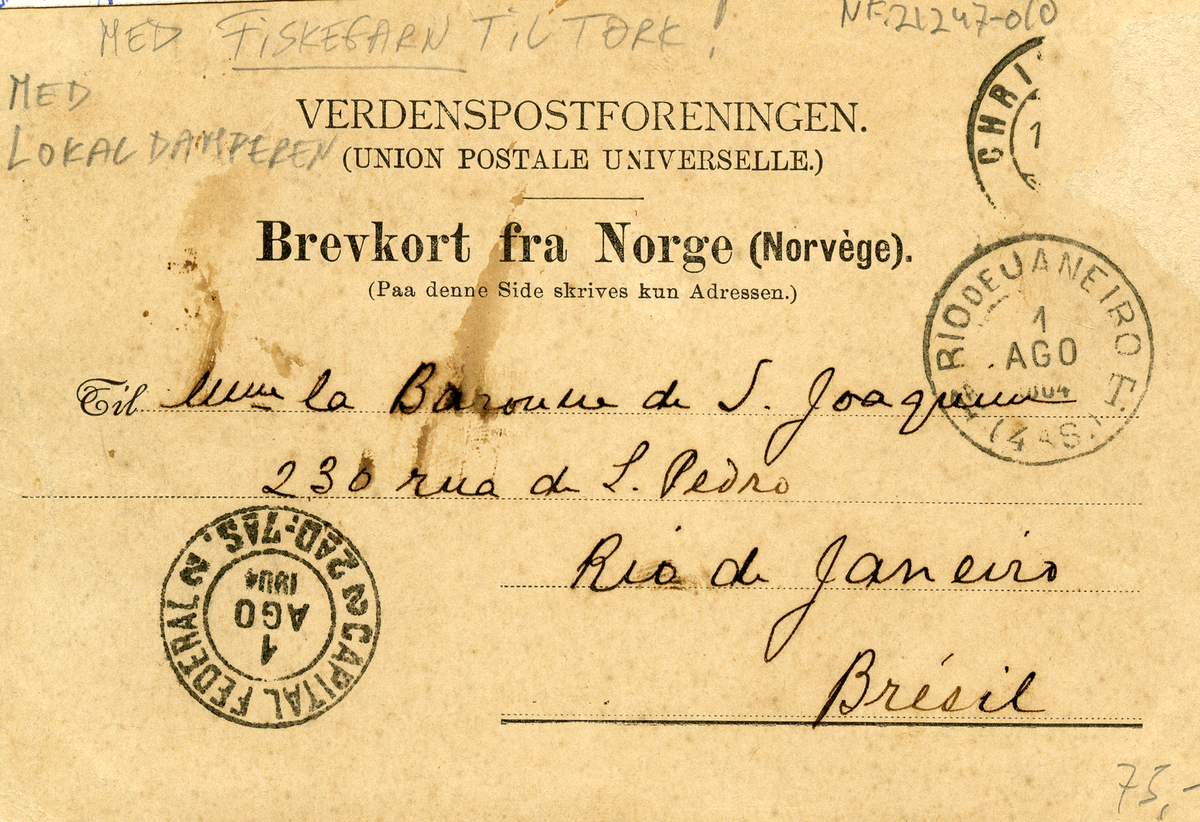 MED FISKEGARN TIL TØRK!
NF.21247-010
MED
LOKALDAMPEREN
VERDENSPOSTFORENINGEN.
(UNION POSTALE UNIVERSELLE.)
CHRI
1
Brevkort fra Norge (Norvège).
(Paa denne Side skrives kun Adressen.)
RIO DE JANEIRO
1
AGO
1904
(4 AS.)
T.
Til Mme la Baronne de S. Joaquim
230 rua de S. Pedro
Rio de Janeiro
Brésil
CAPITAL FEDERAL
2
1
AGO
1904
75,-